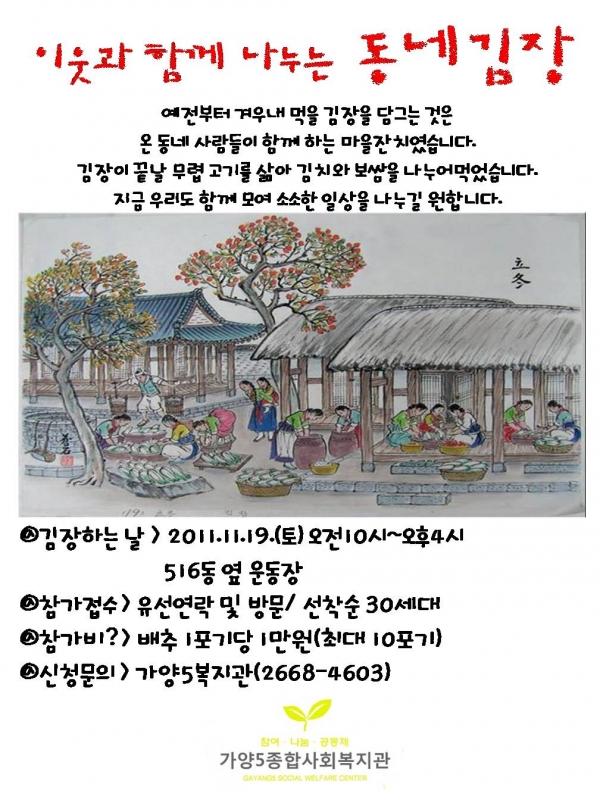 이웃과 함께 나누는 동네김장
예전부터 겨우내 먹을 김장을 담그는 것은
온 동네 사람들이 함께 하는 마을잔치였습니다.
김장이 끝날 무렵 고기를 삶아 김치와 보쌈을 나누어먹었습니다.
지금 우리도 함께 모여 소소한 일상을 나누길 원합니다.
立冬
@김장하는 날 > 2011.11.19.(토) 오전10시~오후4시
516동 옆 운동장
@참가접수 > 유선연락 및 방문/ 선착순 30세대
@참가비? > 배추 1포기당 1만원(최대 10포기)
@신청문의 > 가양5복지관(2668-4603)
참여·나눔·공동체
가양5종합사회복지관
GAYANG5 SOCIAL WELFARE CENTER